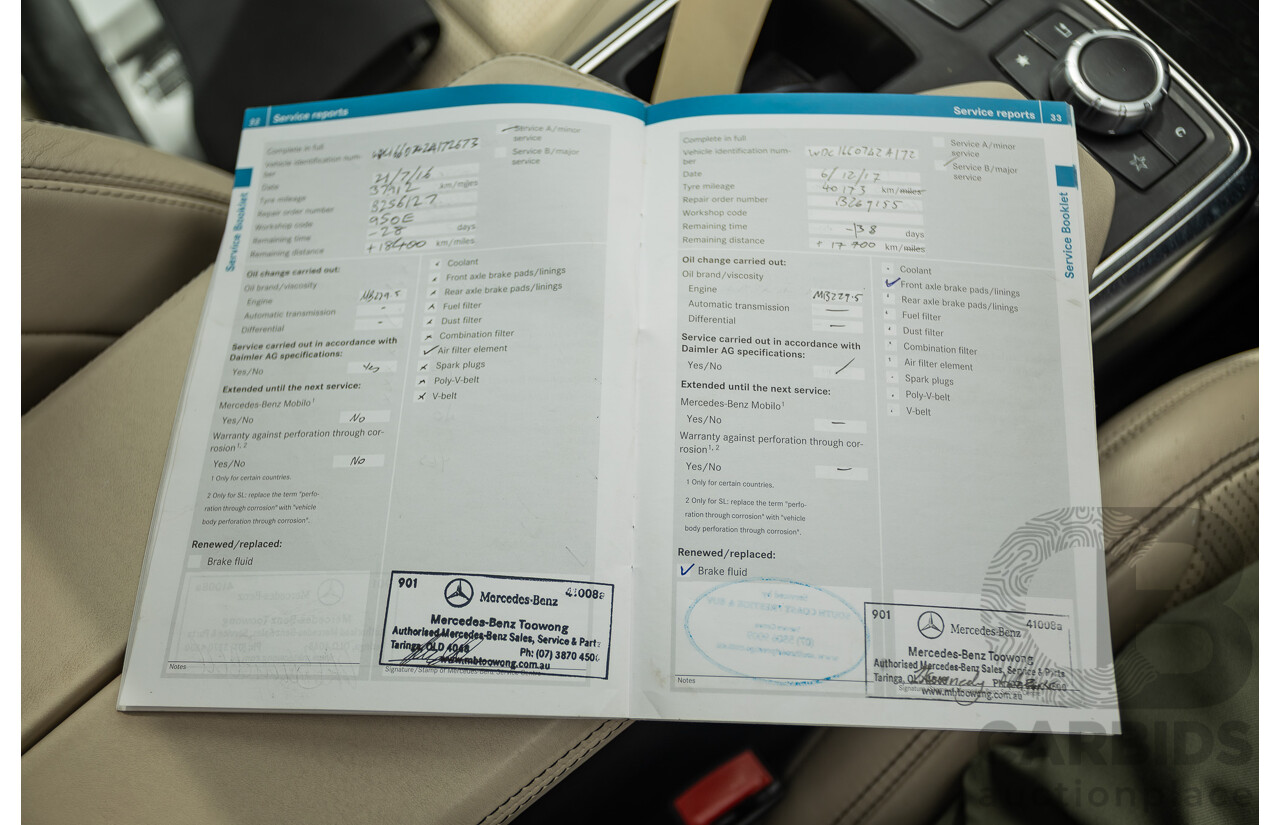 32 Service reports
Complete in full
Vehicle identification num-
ber
Date 21/7/16
Tyre mileage 37912 km/miles
Repair order number 3256127
Workshop code 950E
Remaining time -28 days
Remaining distance +18400 km/miles
Service A/minor
service
Service B/major
service
Service Booklet
Oil change carried out:
Oil brand/viscosity
Engine MB229.5
Automatic transmission -
Differential -
Service carried out in accordance with
Daimler AG specifications:
Yes/No Yes
Extended until the next service:
Mercedes-Benz Mobilo1
Yes/No No
Warranty against perforation through cor-
rosion1, 2
Yes/No No
1 Only for certain countries.
2 Only for SL: replace the term "perfo-
ration through corrosion" with "vehicle
body perforation through corrosion".
Renewed/replaced:
Brake fluid
Coolant
Front axle brake pads/linings
Rear axle brake pads/linings
Fuel filter
Dust filter
Combination filter
Air filter element
Spark plugs
Poly-V-belt
V-belt
901 Mercedes-Benz 41008a
Mercedes-Benz Toowong
Authorised Mercedes-Benz Sales, Service & Parts
Taringa, QLD 4068 Ph: (07) 3870 450
www.mbtoowong.com.au
Notes
Signature/Stamp of Mercedes-Benz Service Centre
Service reports 33
Complete in full
Vehicle identification num-
ber WDC1660762A172
Date 6/12/17
Tyre mileage 40173 km/miles
Repair order number 3269155
Workshop code
Remaining time -38 days
Remaining distance +17700 km/miles
Service A/minor
service
Service B/major
service
Service Booklet
Oil change carried out:
Oil brand/viscosity
Engine MB229.5
Automatic transmission —
Differential —
Service carried out in accordance with
Daimler AG specifications:
Yes/No
Extended until the next service:
Mercedes-Benz Mobilo1
Yes/No —
Warranty against perforation through cor-
rosion1, 2
Yes/No —
1 Only for certain countries.
2 Only for SL: replace the term "perfo-
ration through corrosion" with "vehicle
body perforation through corrosion".
Renewed/replaced:
Brake fluid
Coolant
Front axle brake pads/linings
Rear axle brake pads/linings
Fuel filter
Dust filter
Combination filter
Air filter element
Spark plugs
Poly-V-belt
V-belt
901 Mercedes-Benz 41008a
Mercedes-Benz Toowong
Authorised Mercedes-Benz Sales, Service & Parts
Taringa,
www.mbtoowong.com.au
Notes
CARBIDS
auctionplace